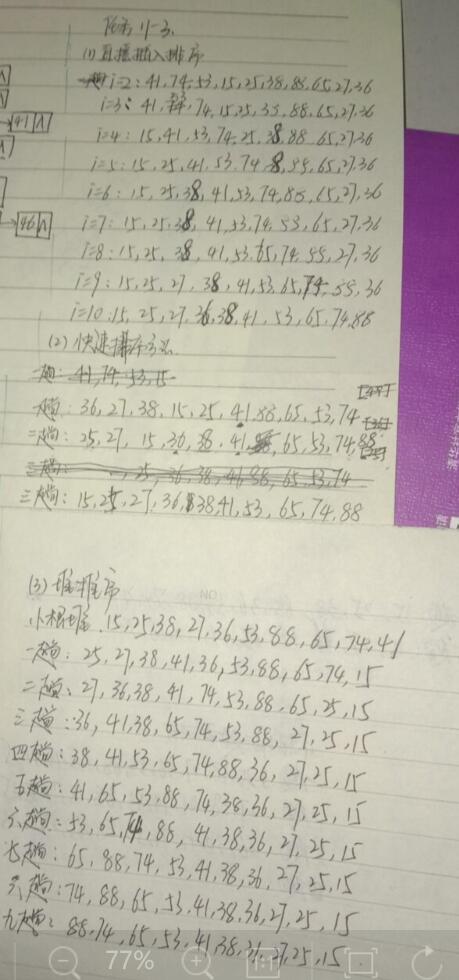 (1) 直接插入排序
i=2: 41,74,53,15,25,38,88,65,27,36
i=3: 41, 74,15,25,35,88,65,27,36
i=4: 15,41,53,74,25,38,88,65,27,36
i=5: 15,25,41,53,74,8,55,65,27,36
i=6: 15,25,38,41,53,74,88,65,27,36
i=7: 15,25,38,41,53,74,53,65,27,36
i=8: 15,25,38,41,53,65,74,55,27,36
i=9: 15,25,27,38,41,53,65,74,55,36
i=10: 15,25,27,36,38,41,53,65,74,88
41 ∧
46 ∧
(2) 快速排序
一趟: 41,74,53,15
一趟: 36,27,38,15,25,41,88,65,53,74
二趟: 25,27,15,36,38,41,65,53,74,88
三趟: 25,36,38,41,88,65,53,74
三趟: 15,25,27,36,38,41,53,65,74,88
(3) 堆排序
小根堆: 15,25,38,27,36,53,88,65,74,41
一趟: 25,27,38,41,36,53,88,65,74,15
二趟: 27,36,38,41,74,53,88,65,25,15
三趟: 36,41,38,65,74,53,88,27,25,15
四趟: 38,41,53,65,74,88,36,27,25,15
五趟: 41,65,53,88,74,38,36,27,25,15
六趟: 53,65,74,88,41,38,36,27,25,15
七趟: 65,88,74,53,41,38,36,27,25,15
八趟: 74,88,65,53,41,38,36,27,25,15
九趟: 88,74,65,53,41,38,36,27,25,15
77%